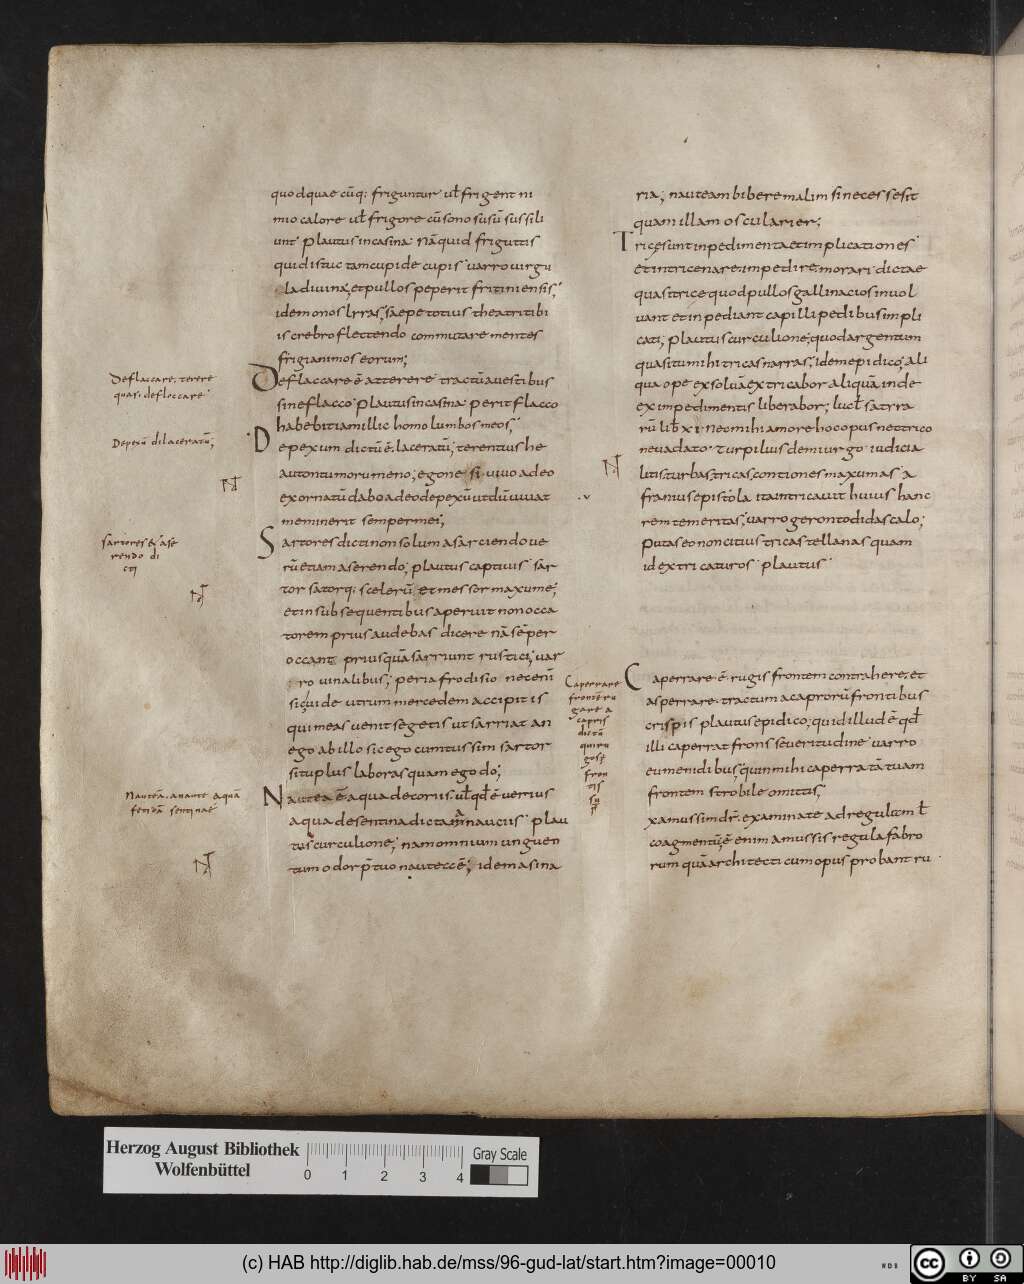 quod quae cūq: friguntur ul̄ frigent ni
mio calore ul̄ frigore cū sono susū sussili
unt· plautus incasina· nāquid friguttis
quid istuc tam cupide cupis· varro virgu
la divina; et pullos peperit fritiniensis;
idem onos lyras; saepe totius theatri tibi
is crebro flectendo commutare mentes
frigi animos eorum;
Deflaccare ē atterere tractū a vestibus
sine flacco· plautus incasina· perit flacco
habebit iam illic homo lumbos meos;
Depexum dictū ē laceratū; terentius he
autontumorumeno; egone si vivo adeo
exornatū dabo adeo depexū ut dū vivat
meminerit semper mei;
Sartores dicti non solum a sarciendo ve
rū etiam a serendo; plautus captivis· sar
tor satorq: scelerū et messor maxume;
et in subsequentibus aperuit non occa
torem prius audebas dicere nā sēper
occant priusquā sarriunt rustici; var
ro vinalibus; periafrodisio
si quide utrum mercedem accipit is
qui meas venit segetis ut sarriat an
ego ab illo sic ego cum tussim sartor
situ plus laboras quam ego do;
Nautea ē aqua de coriis· ul̄ qd̄ ē verius
aqua de sentina dicta a nauciis· plau
tus curculione; nam omnium unguen
tum odor p̄ tuo nautec cē; idem asina
ria; nauteam bibere malim si necessesit
quam illam oscularier;
Trice sunt inpedimenta et implicationes
et intricenare· impedire· morari dictae
quasi trice quod pullos gallinacios invol
vant et inpediant capilli pedibus impli
cati; plautus curculione; quod argentum
quasitu mihi tricas narras; idem epidico; ali
qua ope exsolvā extricabor aliquā inde
ex impedimentis liberabor; lucl̄ satrra
rū lib̄ xı· neo mihi amore hoc opus nec trico
nevadato· turpilius demiurgo· iudicia
litis turbas tricas contiones maxumas· a
franius epistola· ita intricavit huius hanc
rem temeritas; varro gerontodidascalo;
putas eo non citius tricas tellanas quam
id extricaturos· plautus·
Caperrare ē· rugis frontem contrahere· et
asperrare· tractum a caprorū frontibus
crispis· plautus epidico; quid illud ē qd̄
illi caperrat frons severitudine· varro
eumenidibus; quin mihi caperratā tuam
frontem strobile omittis;
xamussim dr̄· examinate ad regulam l̄
coagmentū; ē enim amussis regula fabro
rum quā architecti cum opus probant ru
Deflaccare· terere
quasi· defloccare
Depexū dilaceratū;
sartores & a se
rendo di
cti
Nauteā· a naute aquā
fetidā sentinae
Caperrare
frontē ru
gare a
capris
dictū
quiru
gosē
fron
tis
sū
Herzog August Bibliothek
Wolfenbüttel
0 1 2 3 4
Gray Scale
(c) HAB http://diglib.hab.de/mss/96-gud-lat/start.htm?image=00010
WDB
cc BY SA